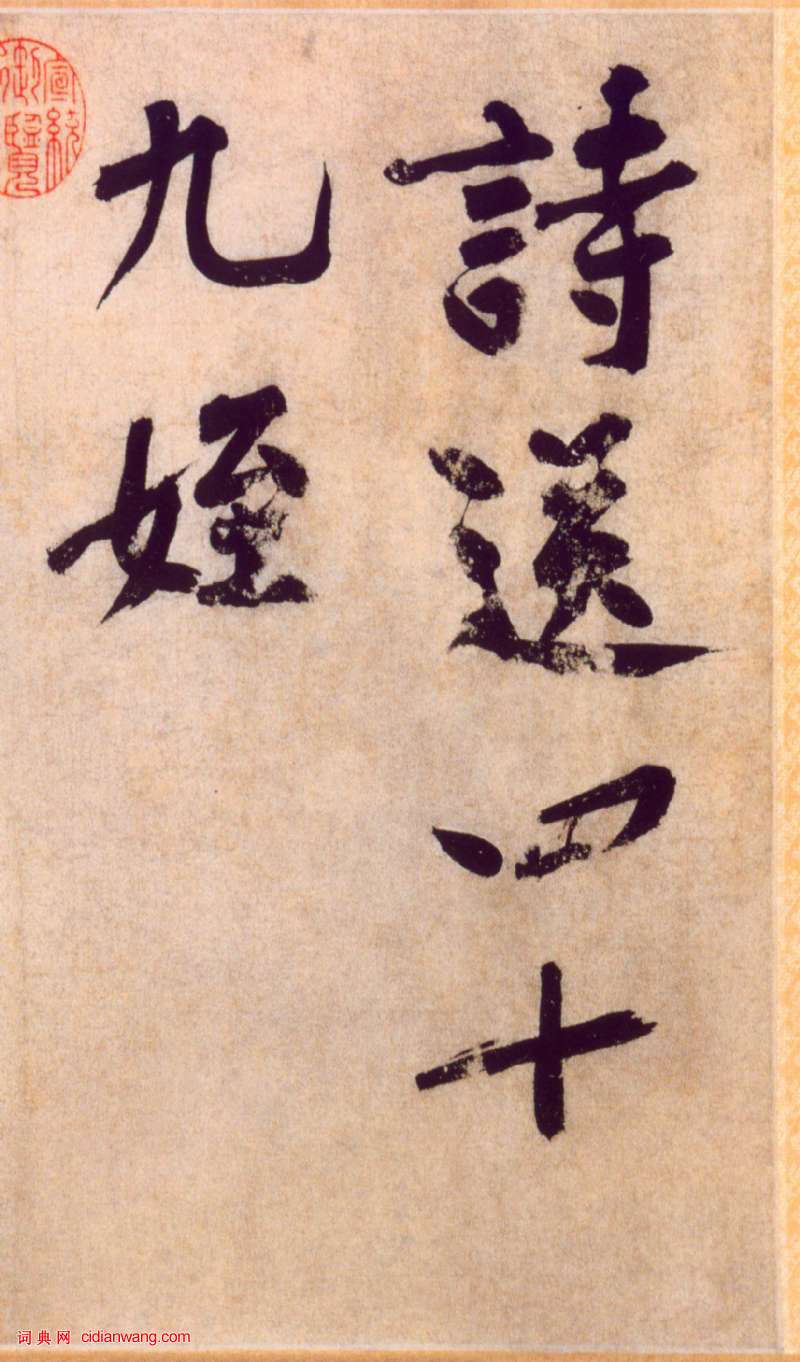 詩送四十
九姪
宣統
御覽
词典网 cidianwang.com